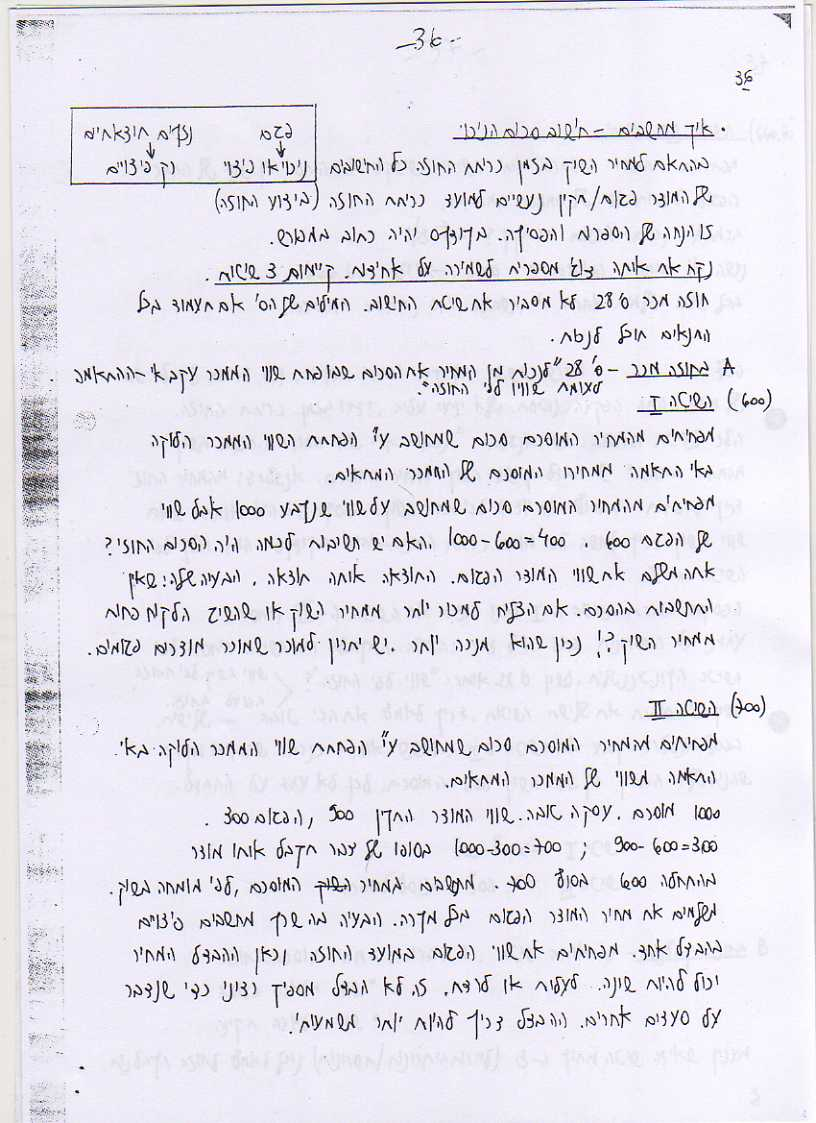 -36-
36
פגם נזקים תוצאתיים
ניכוי או פיצוי רק פיצויים
• איך מחשבים – חישוב סכום הניכוי
בהתאם למחיר השוק בזמן כריתת החוזה כל החישובים
של המוצר פגום/תקין נעשים למועד כריתת החוזה (ביצוע החוזה)
זו הנחה של הספרות והפסיקה. בקודקס יהיה כתוב במפורש.
נקח את אותה דוג' מספרית לשמירה על אחידות. קיימות 3 שיטות.
חוזה מכר ס' 28 לא מסביר את שיטת החישוב. המילים של הס' אם תעמוד בכל
התנאים תוכל לנכות.
A בחוזה מכר – ס' 28 "לנכות מן המחיר את הסכום שבו פחת שווי הממכר עקב אי-ההתאמה
לעומת שוויו לפי החוזה"
(600) השיטה I
מפחיתים מהמחיר המוסכם סכום שמחושב ע"י הפחתת השווי הממכר הלוקה
באי התאמה ממחירו המוסכם של הממכר המתאים.
מפחיתים מהמחיר המוסכם סכום שמחושב על שווי שנקבע 1000 אבל שווי
של הפגום 600. 1000-600=400. האם יש חשיבות לכמה היה הסכום החוזי?
אתה משלם את שווי המוצר הפגום. התוצאה אותה תוצאה, הבעיה שלה: שאין
התחשבות בהסכם. אם הצליח למכור יותר ממחיר השוק או שהשיג הלקוח פחות
ממחיר השוק?! נכון שהוא מנכה יותר. יש יתרון למוכר שמוכר מוצרים פגומים.
(700) השיטה II
מפחיתים מהמחיר המוסכם סכום שמחושב ע"י הפחתת שווי הממכר הלוקה באי.
התאמה משווי של הממכר המתאים.
1000 מוסכם. עסקה טובה. שווי המוצר התקין 900, הפגום 300.
900-600=300 ; 1000-300=700 בסופו של דבר תקבל אותו מוצר
בהתחלה 600 בסוף 700. מתחשבים במחיר המוסכם, לפי מומחה בשוק.
משלמים את מחיר המוצר הפגום בכל מקרה. הבעיה בה שכך מחשבים פיצויים
בהבדל אחד. מפחיתים את שווי הפגום במועד החוזה וכאן ההבדל המחיר
יכול להיות שונה. לעלות או לרדת. זה לא הבדל מספיק רציני כדי שנדבר
על סעדים אחרים. ההבדל צריך להיות יותר משמעותי.